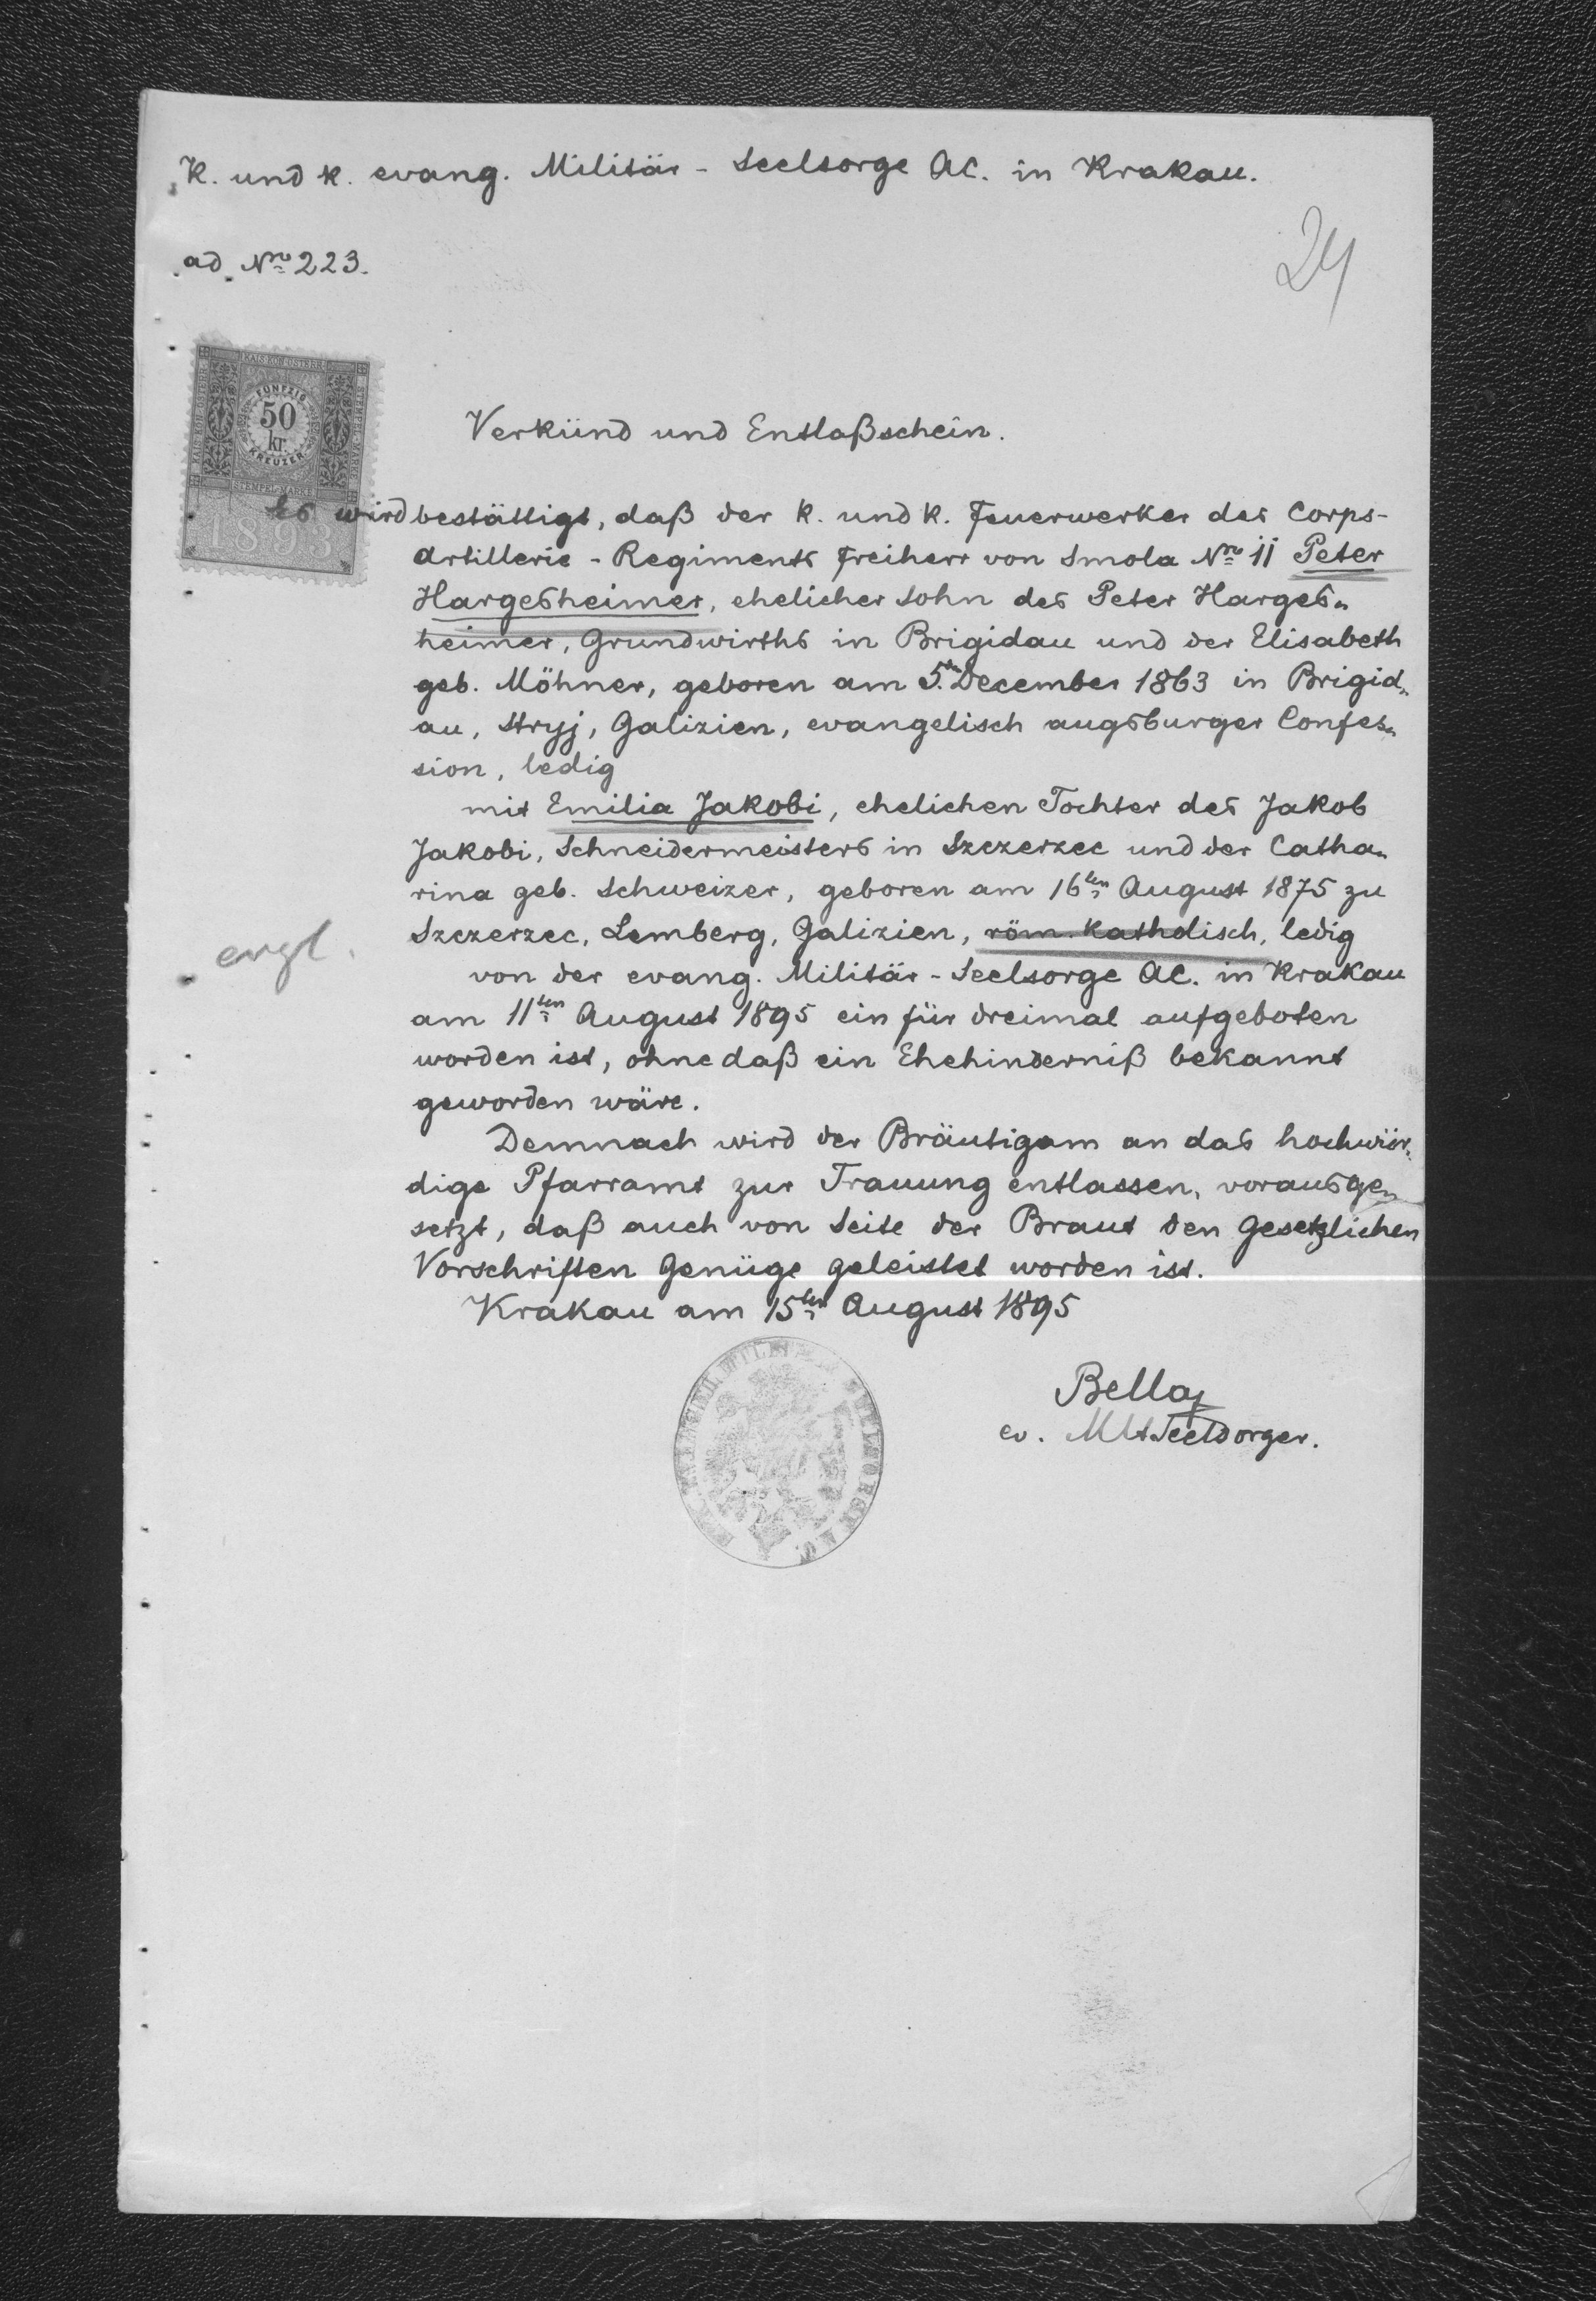 K. und k. evang. Militär - Seelsorge AC. in Krakau.
24
ad Nro 223.
KAIS. KÖN. ÖSTERR.
STEMPEL-MARKE
FÜNFZIG
50
kr.
KREUZER
STEMPEL-MARKE
1893
Verkünd und Entlaßschein.
Es wird bestättigt, daß der k. und k. Feuerwerker des Corps-
Artillerie - Regiments Freiherr von Smola Nro 11 Peter
Hargesheimer, ehelicher Sohn des Peter Harges„
heimer, Grundwirths in Brigidau und der Elisabeth
geb. Möhner, geboren am 5.ten December 1863 in Brigid„
au, Stryj, Galizien, evangelisch augsburger Confes„
sion, ledig
mit Emilia Jakobi, ehelichen Tochter des Jakob
Jakobi, Schneidermeisters in Szczerzec und der Catha„
rina geb. Schweizer, geboren am 16ten August 1875 zu
Szczerzec, Lemberg, Galizien, röm. katholisch, ledig
evgl.
von der evang. Militär - Seelsorge AC. in Krakau
am 11ten August 1895 ein für dreimal aufgeboten
worden ist, ohne daß ein Ehehinderniß bekannt
geworden wäre.
Demnach wird der Bräutigam an das hochwür„
dige Pfarramt zur Trauung entlassen, vorausge„
setzt, daß auch von Seite der Braut den gesetzlichen
Vorschriften Genüge geleistet worden ist.
Krakau am 15ten August 1895
SEELSORGE A.C.
ev. Mlt Seelsorger.